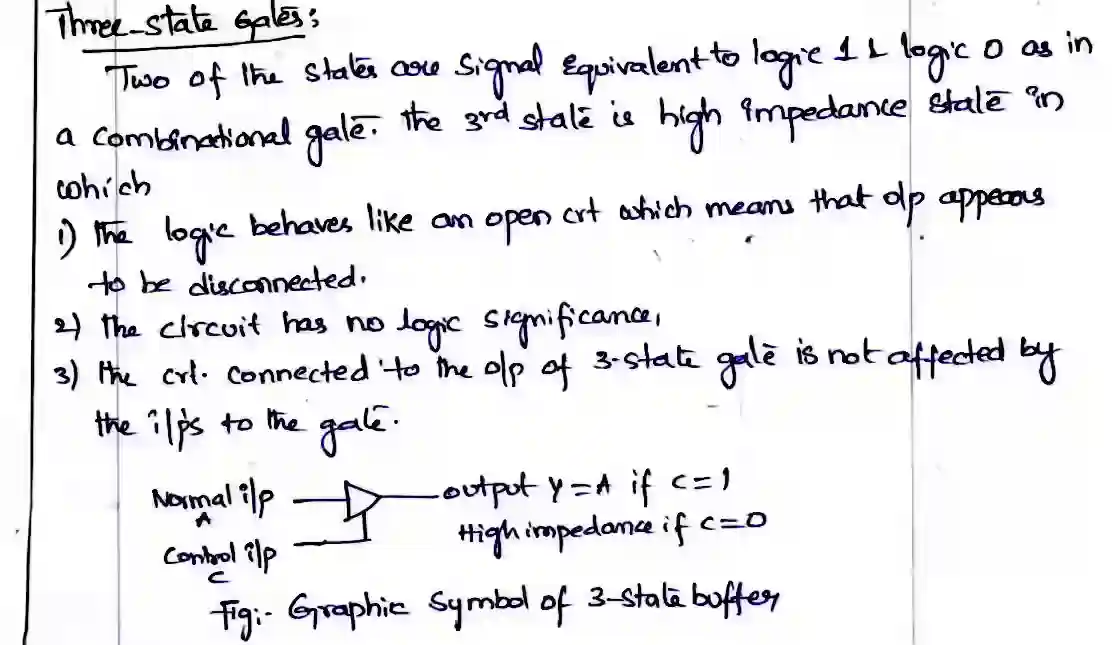 Three-state Gates:
Two of the states are signal equivalent to logic 1 & logic 0 as in
a combinational gate. the 3rd state is high impedance state in
which
1) the logic behaves like an open crt which means that o/p appears
to be disconnected.
2) the circuit has no logic significance,
3) the crt. connected to the o/p of 3-state gate is not affected by
the i/p's to the gate.
Normal i/p output Y=A if C=1
A High impedance if C=0
Control i/p
C
Fig:- Graphic Symbol of 3-state buffer